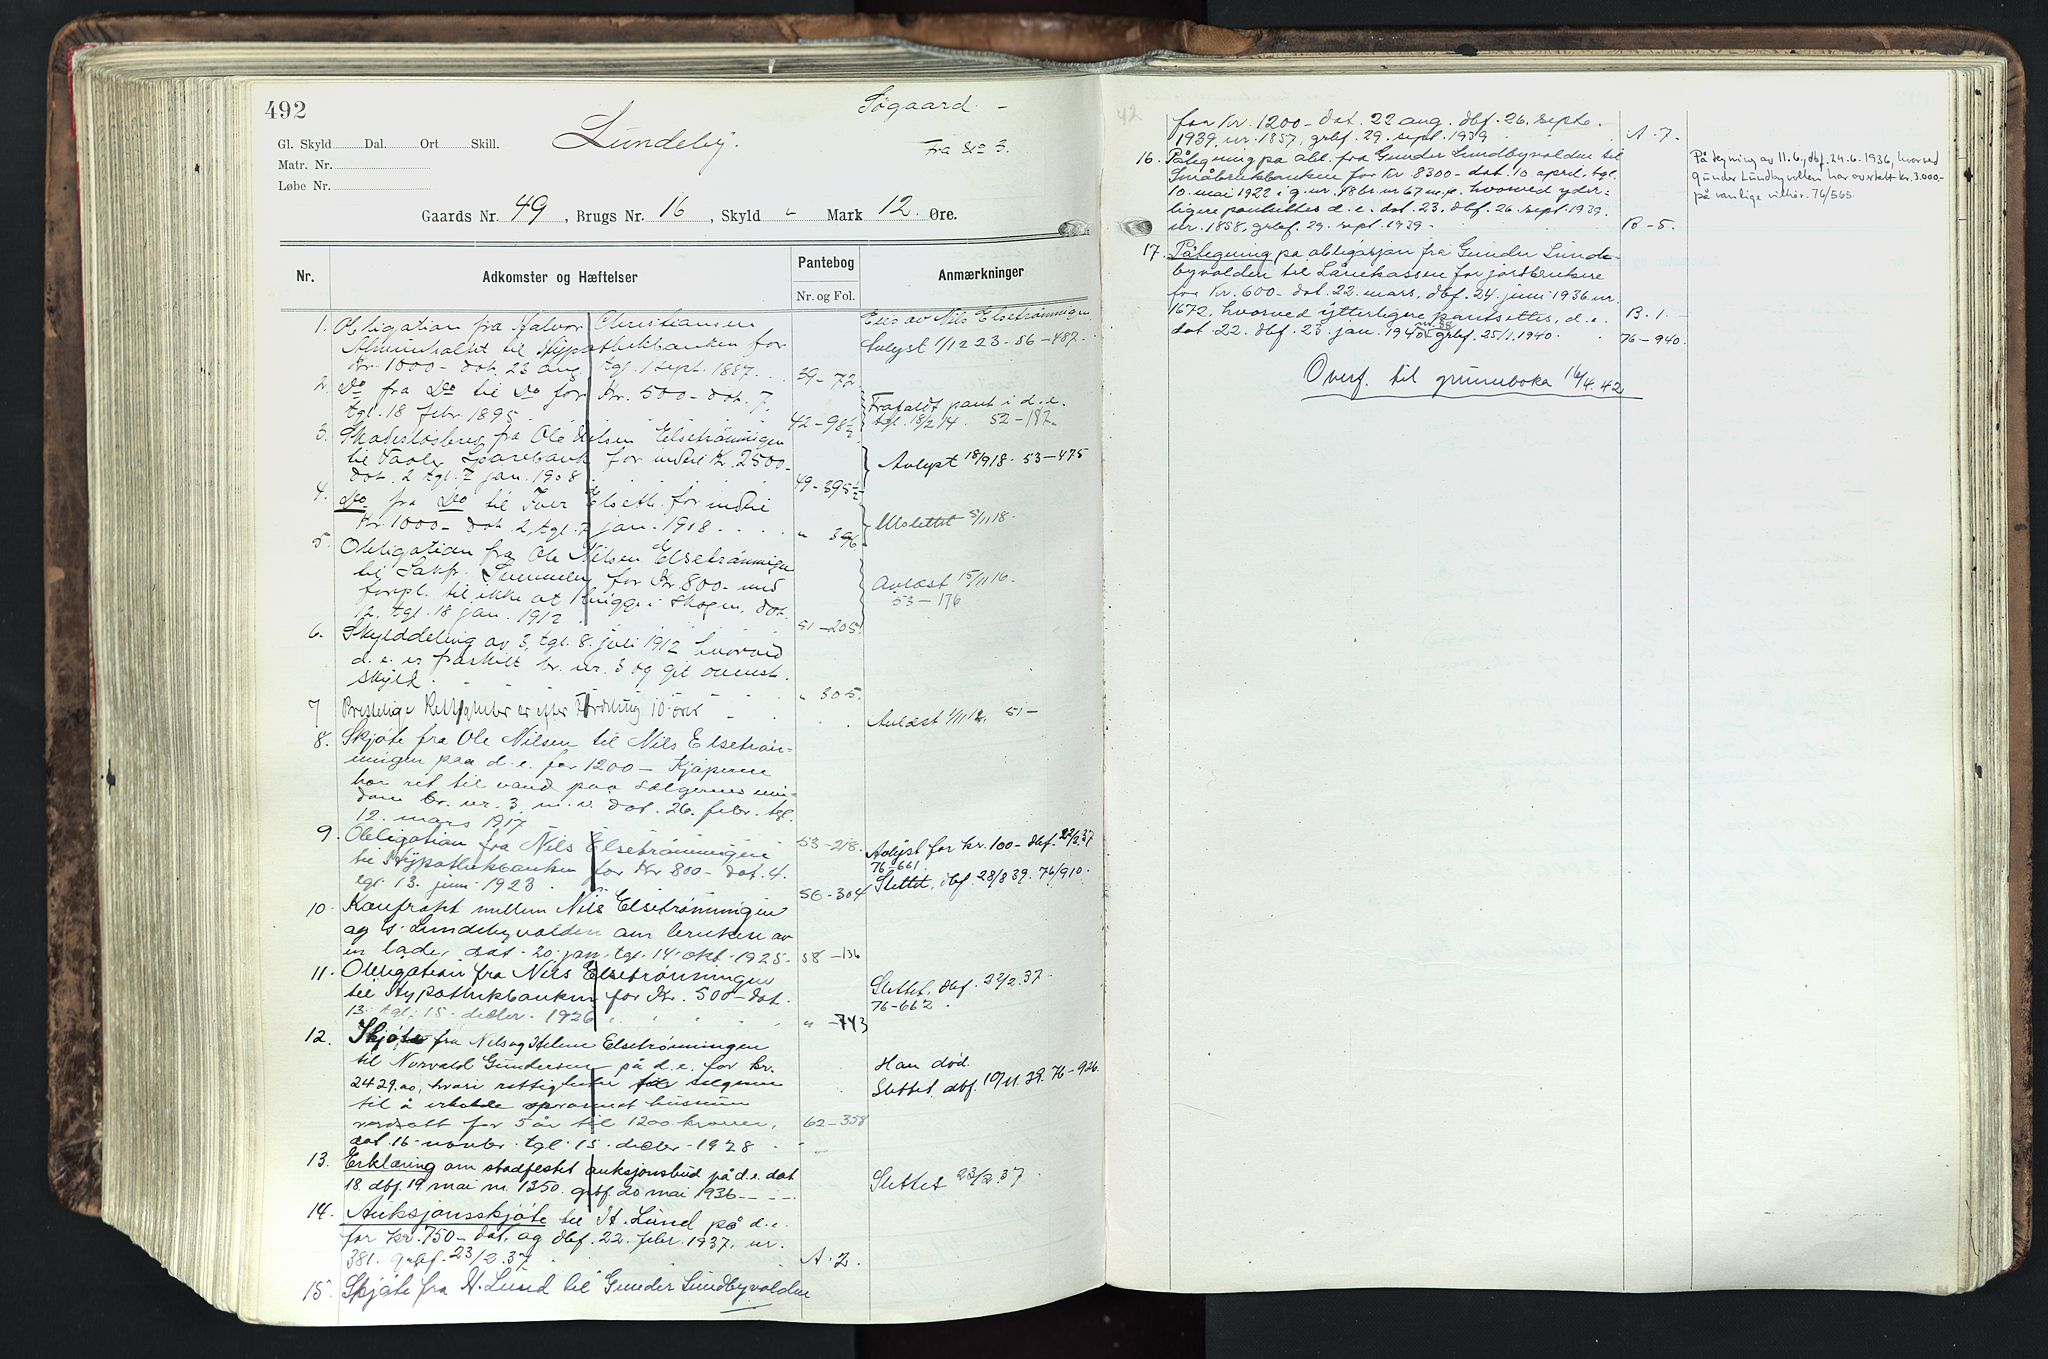 492
Søgaard -
Gl. Skyld Dal. Ort Skill.
Lundeby.
Fra No 3.
Matr. Nr.
Løbe Nr.
Gaards Nr. 49, Brugs Nr. 16, Skyld " Mark 12 Øre.
Nr.
Adkomster og Hæftelser
Pantebog
Nr. og Fol.
Anmærkninger
1. Obligation fra Halvor Christiansen
Almenholdet til Hypothekbanken for
Kr. 1000 - dat. 23 aug. tgl. 1 sept. 1887. 39-72
Eies av Nils Elsetrønningen
Avlyst 1/12 23 - 56-487.
2. Do fra Do til Do for Kr. 500 - dat. 7,
tgl. 18 febr. 1895. 42-98½
Frafaldt pant i d.e.
tgl. 18/2 14. 52-187
3. Skadesløsbrev fra Ole Nilsen Elsetrønningen
til Vaaler Sparebank for indtil Kr. 2500-
dat. 2 tgl. 7 jan. 1908. 49-395½
Avlyst 18/9 18. 53-475
4. Do fra Do til Iver Elseth for indtil
Kr. 1000 - dat. 2, tgl. 7 jan. 1908. " 396
Utslettet 5/11 18.
5. Obligation fra Ole Nilsen Elsetrønningen
til Sakf. for Kr. 800 - med
forpl. til ikke at hugge i skogen, dat.
12, tgl. 18 jan. 1912 51-205
Avlæst 15/11 16.
53-176
6. Skylddeling av 3, tgl. 8. juli 1912 hvorved
d.e. er fraskilt br. nr. 3 og git ovenst.
skyld. " 305.
7 Prestelige Rettigheter er efter Fordeling 10 øre
Avlæst 1/11 12. 51-
8. Skjøte fra Ole Nilsen til Nils Elsetrøn-
ningen paa d.e. for 1200 - Kjøperen
har ret til vand paa sælgerens eien-
dom br. nr. 3, m.v. dat. 26. febr. tgl.
12. mars 1917. 53-218.
9. Obligation fra Nils Elsetrønningen
til Hypothekbanken for Kr. 800 - dat. 4.
tgl. 13. juni 1923. 56-304
Avlyst for kr. 100 - dbf. 22/2.37
76-661
Slettet, dbf. 28/8 39. 76/910.
10. Kontrakt mellem Nils Elsetrønningen
og G. Lundebyvolden om bruken av
en lade, dat. 20. jan. tgl. 14. okt. 1925. 58-136
11. Obligation fra Nils Elsetrønningen
til Hypothekbanken for Kr. 500 - dat.
13. tgl. 15. decbr. 1926 " -743
Slettet, dbf. 22/2.37.
76-662.
12. Skjøte fra Nils og Helene Elsetrønningen
til Norvald Gundersen på d.e. for kr.
2429.00, hvori rettigheter for selgerne
til å erholde husrum
verdsatt for 5 år til 1200 kroner,
dat. 16 novbr. tgl. 15. decbr. 1928. 62-358
Han død.
Slettet, dbf. 10/11 39. 76-926.
13. Erklæring om stadfestet auksjonsbud på d.e. dat
18. dbf. 19 mai nr. 1350. grbf. 20 mai 1936
Slettet 23/2.37.
14. Auksjonsskjøte til H. Lund på d.e.
for kr. 750 - dat. og dbf. 22. febr. 1937, nr.
381. grbf. 23/2.37. A. 2.
15. Skjøte fra H. Lund til Gunder Lundbyvolden
for Kr. 1200 - dat. 22 aug. dbf. 26. septb.
1939, nr. 1857, grbf. 29. sept. 1939. A. 7.
16. Påtegning på obl. fra Gunder Lundbyvolden til
Småbrukbanken for Kr. 8300 - dat. 10 april, tgl.
10. mai 1922 i g.nr. 48 br. nr 67 m.fl. hvorved yder-
ligere pantsettes d.e. dat. 23, dbf. 26. sept. 1939.
nr. 1858, grbf. 29. sept. 1939. B-5.
Påtegning av 11.6, dbf. 24.6.1936, hvorved
Gunder Lundbyvollen har avbetalt kr. 3.000.-
på vanlige vilkår. 76/565.
17. Påtegning på obligasjon fra Gunder Lund-
byvolden til Lånekassen for jordbrukere
for Kr. 600 - dat. 22. mars, dbf. 24. juni 1936 nr.
1672, hvorved ytterligere pantsettes, d.e.
dat. 22. dbf. 23. jan. 1940 nr. 88 grbf. 25/1.1940. B. 1. -
76-940.
Overf. til grunnboka 16/4.42